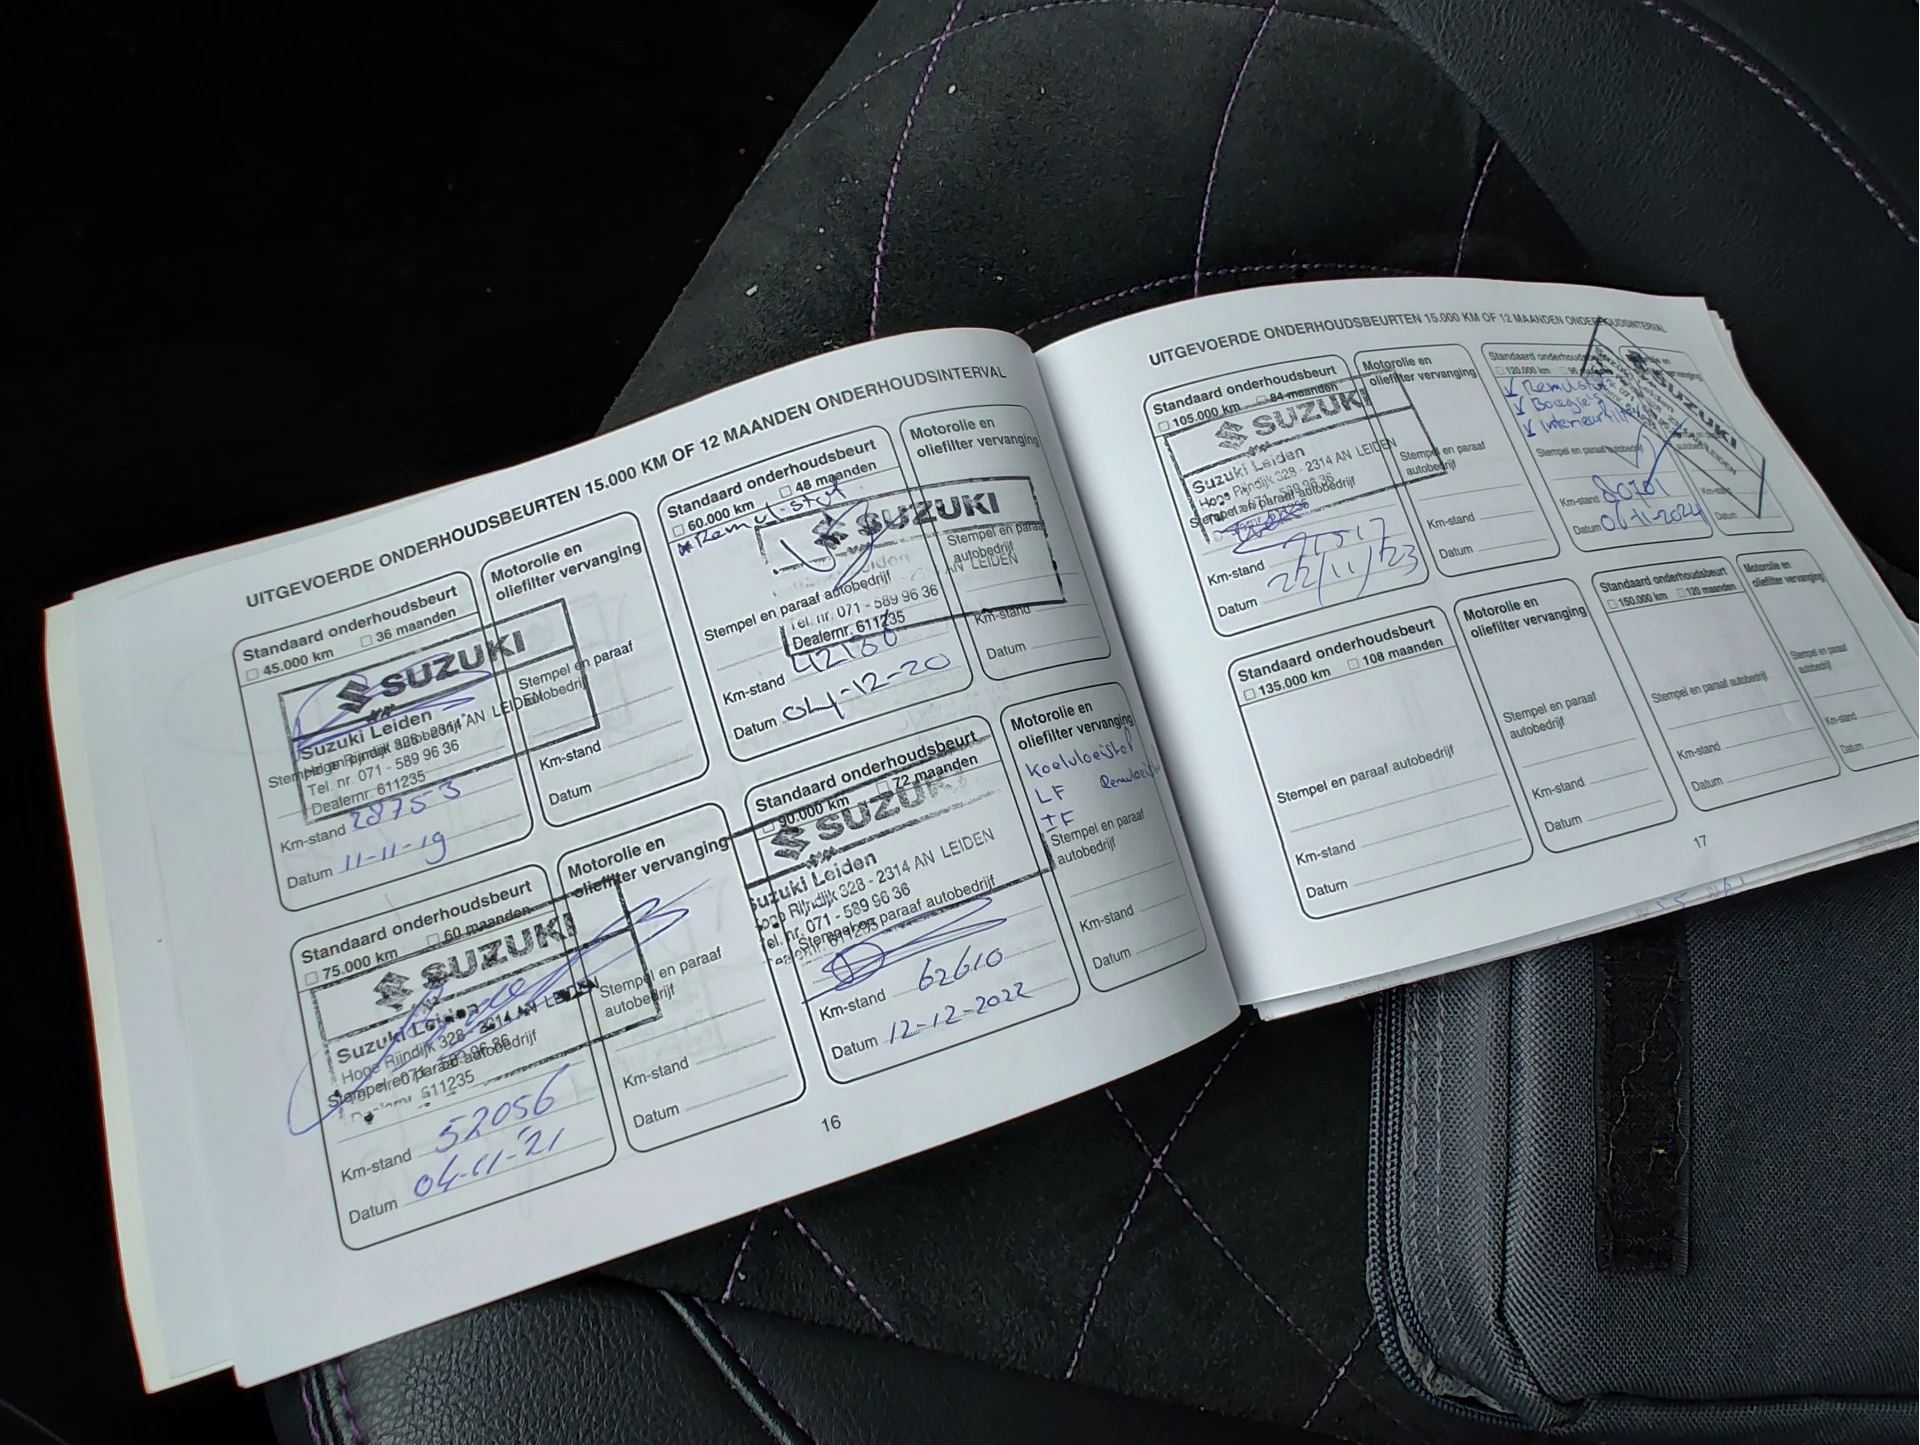 UITGEVOERDE ONDERHOUDSBEURTEN 15.000 KM OF 12 MAANDEN ONDERHOUDSINTERVAL
Standaard onderhoudsbeurt
45.000 km 36 maanden
SUZUKI
Suzuki Leiden
328 - 2314 AN LEIDEN
Tel. nr. 071 - 589 96 36
Dealernr. 611235
Km-stand 28753
Datum 11-11-19
Motorolie en
oliefilter vervanging
Stempel en paraaf
autobedrijf
Km-stand
Datum
Standaard onderhoudsbeurt
60.000 km 48 maanden
SUZUKI
AN LEIDEN
Stempel en paraaf autobedrijf
Tel. nr. 071 - 589 96 36
Dealernr. 611235
Km-stand
Datum 04-12-20
Motorolie en
oliefilter vervanging
Stempel en paraaf
autobedrijf
Km-stand
Datum
Standaard onderhoudsbeurt
75.000 km 60 maanden
SUZUKI
Suzuki Leiden
Hoge Rijndijk 328 - 2314 AN LEIDEN
611235
Km-stand 52056
Datum 04-11-21
Motorolie en
oliefilter vervanging
Stempel en paraaf
autobedrijf
Km-stand
Datum
Standaard onderhoudsbeurt
90.000 km 72 maanden
SUZUKI
Suzuki Leiden
Hoge Rijndijk 328 - 2314 AN LEIDEN
Tel. nr. 071 - 589 96 36
Stempel en paraaf autobedrijf
Km-stand 62610
Datum 12-12-2022
Motorolie en
oliefilter vervanging
LF
IF
Stempel en paraaf
autobedrijf
Km-stand
Datum
16
UITGEVOERDE ONDERHOUDSBEURTEN 15.000 KM OF 12 MAANDEN ONDERHOUDSINTERVAL
Standaard onderhoudsbeurt
105.000 km 84 maanden
SUZUKI
Suzuki Leiden
Hoge Rijndijk 328 - 2314 AN LEIDEN
Stempel en paraaf autobedrijf
Km-stand
Datum 22/11/23
Motorolie en
oliefilter vervanging
Stempel en paraaf
autobedrijf
Km-stand
Datum
Standaard
120.000 km
Stempel en paraaf autobedrijf
Km-stand
Datum
SUZUKI
LEIDEN
Km-stand
Datum
Standaard onderhoudsbeurt
135.000 km 108 maanden
Stempel en paraaf autobedrijf
Km-stand
Datum
Motorolie en
oliefilter vervanging
Stempel en paraaf
autobedrijf
Km-stand
Datum
Standaard onderhoudsbeurt
150.000 km 120 maanden
Stempel en paraaf autobedrijf
Km-stand
Datum
Motorolie en
oliefilter vervanging
Stempel en paraaf
autobedrijf
Km-stand
Datum
17